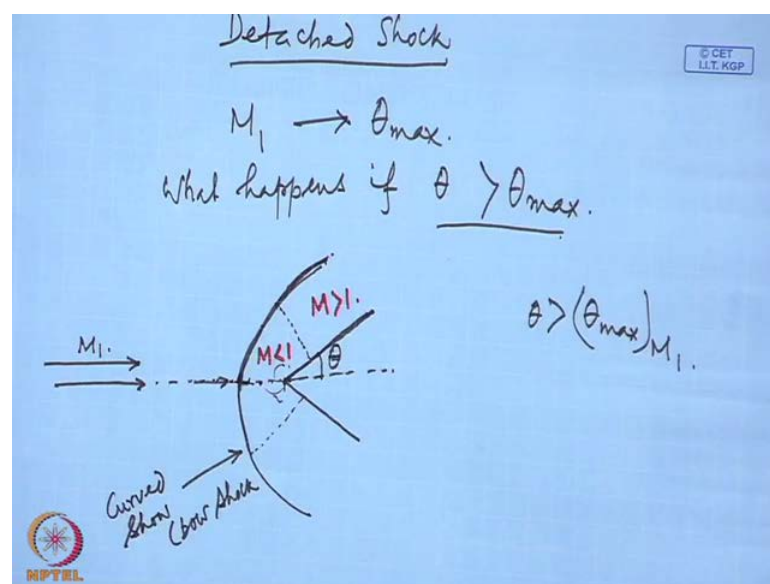 Detached Shock
© CET
I.I.T. KGP
M₁ → θmax.
What happens if θ > θmax.
M>1.
θ > (θmax)M₁.
M₁.
M<1
θ
Curved
Show
(bow shock
NPTEL